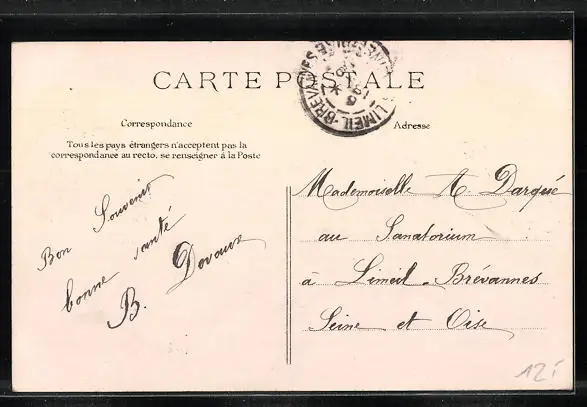 CARTE POSTALE
LIMEIL-BREVANNES
Correspondance
Adresse
Tous les pays étrangers n'acceptent pas la
correspondance au recto, se renseigner à la Poste
Bon Souvenir
bonne santé
B. Devaux
Mademoiselle A Darqué
au Sanatorium
à Limeil-Brévannes
Seine et Oise
12f